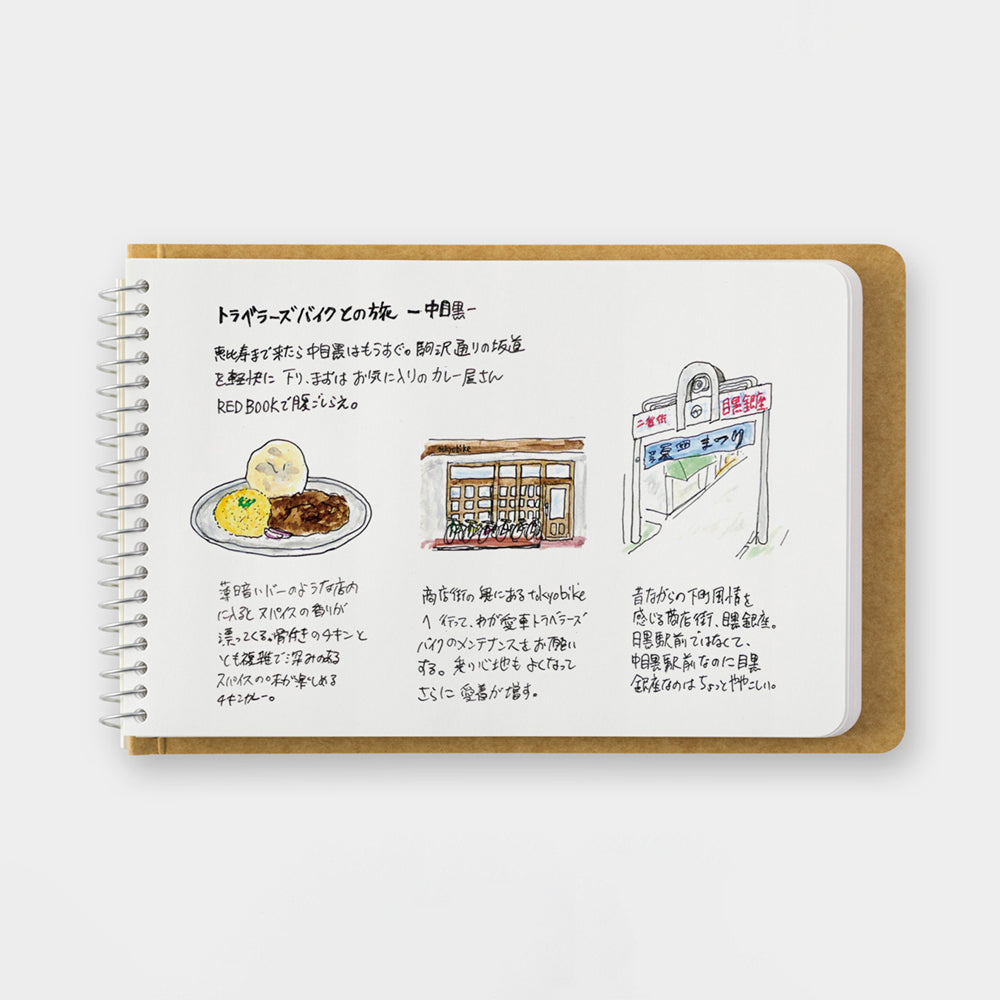 トラベラーズバイクとの旅 ー中目黒ー
恵比寿まで来たら中目黒はもうすぐ。駒沢通りの坂道
を軽快に下り、まずはお気に入りのカレー屋さん
RED BOOKで腹ごしらえ。
薄暗いバーのような店内
に入るとスパイスの香りが
漂ってくる。骨付きのチキンと
とても複雑で深みのある
スパイスの味が楽しめる
チキンカレー。
tokyobike
商店街の奥にあるtokyobike
へ行って、わが愛車トラベラーズ
バイクのメンテナンスをお願い
する。乗り心地もよくなって
さらに愛着が増す。
二番街
目黒銀座
まつり
昔ながらの下町風情を
感じる商店街、目黒銀座。
目黒駅前ではなくて、
中目黒駅前なのに目黒
銀座なのはちょっとややこしい。